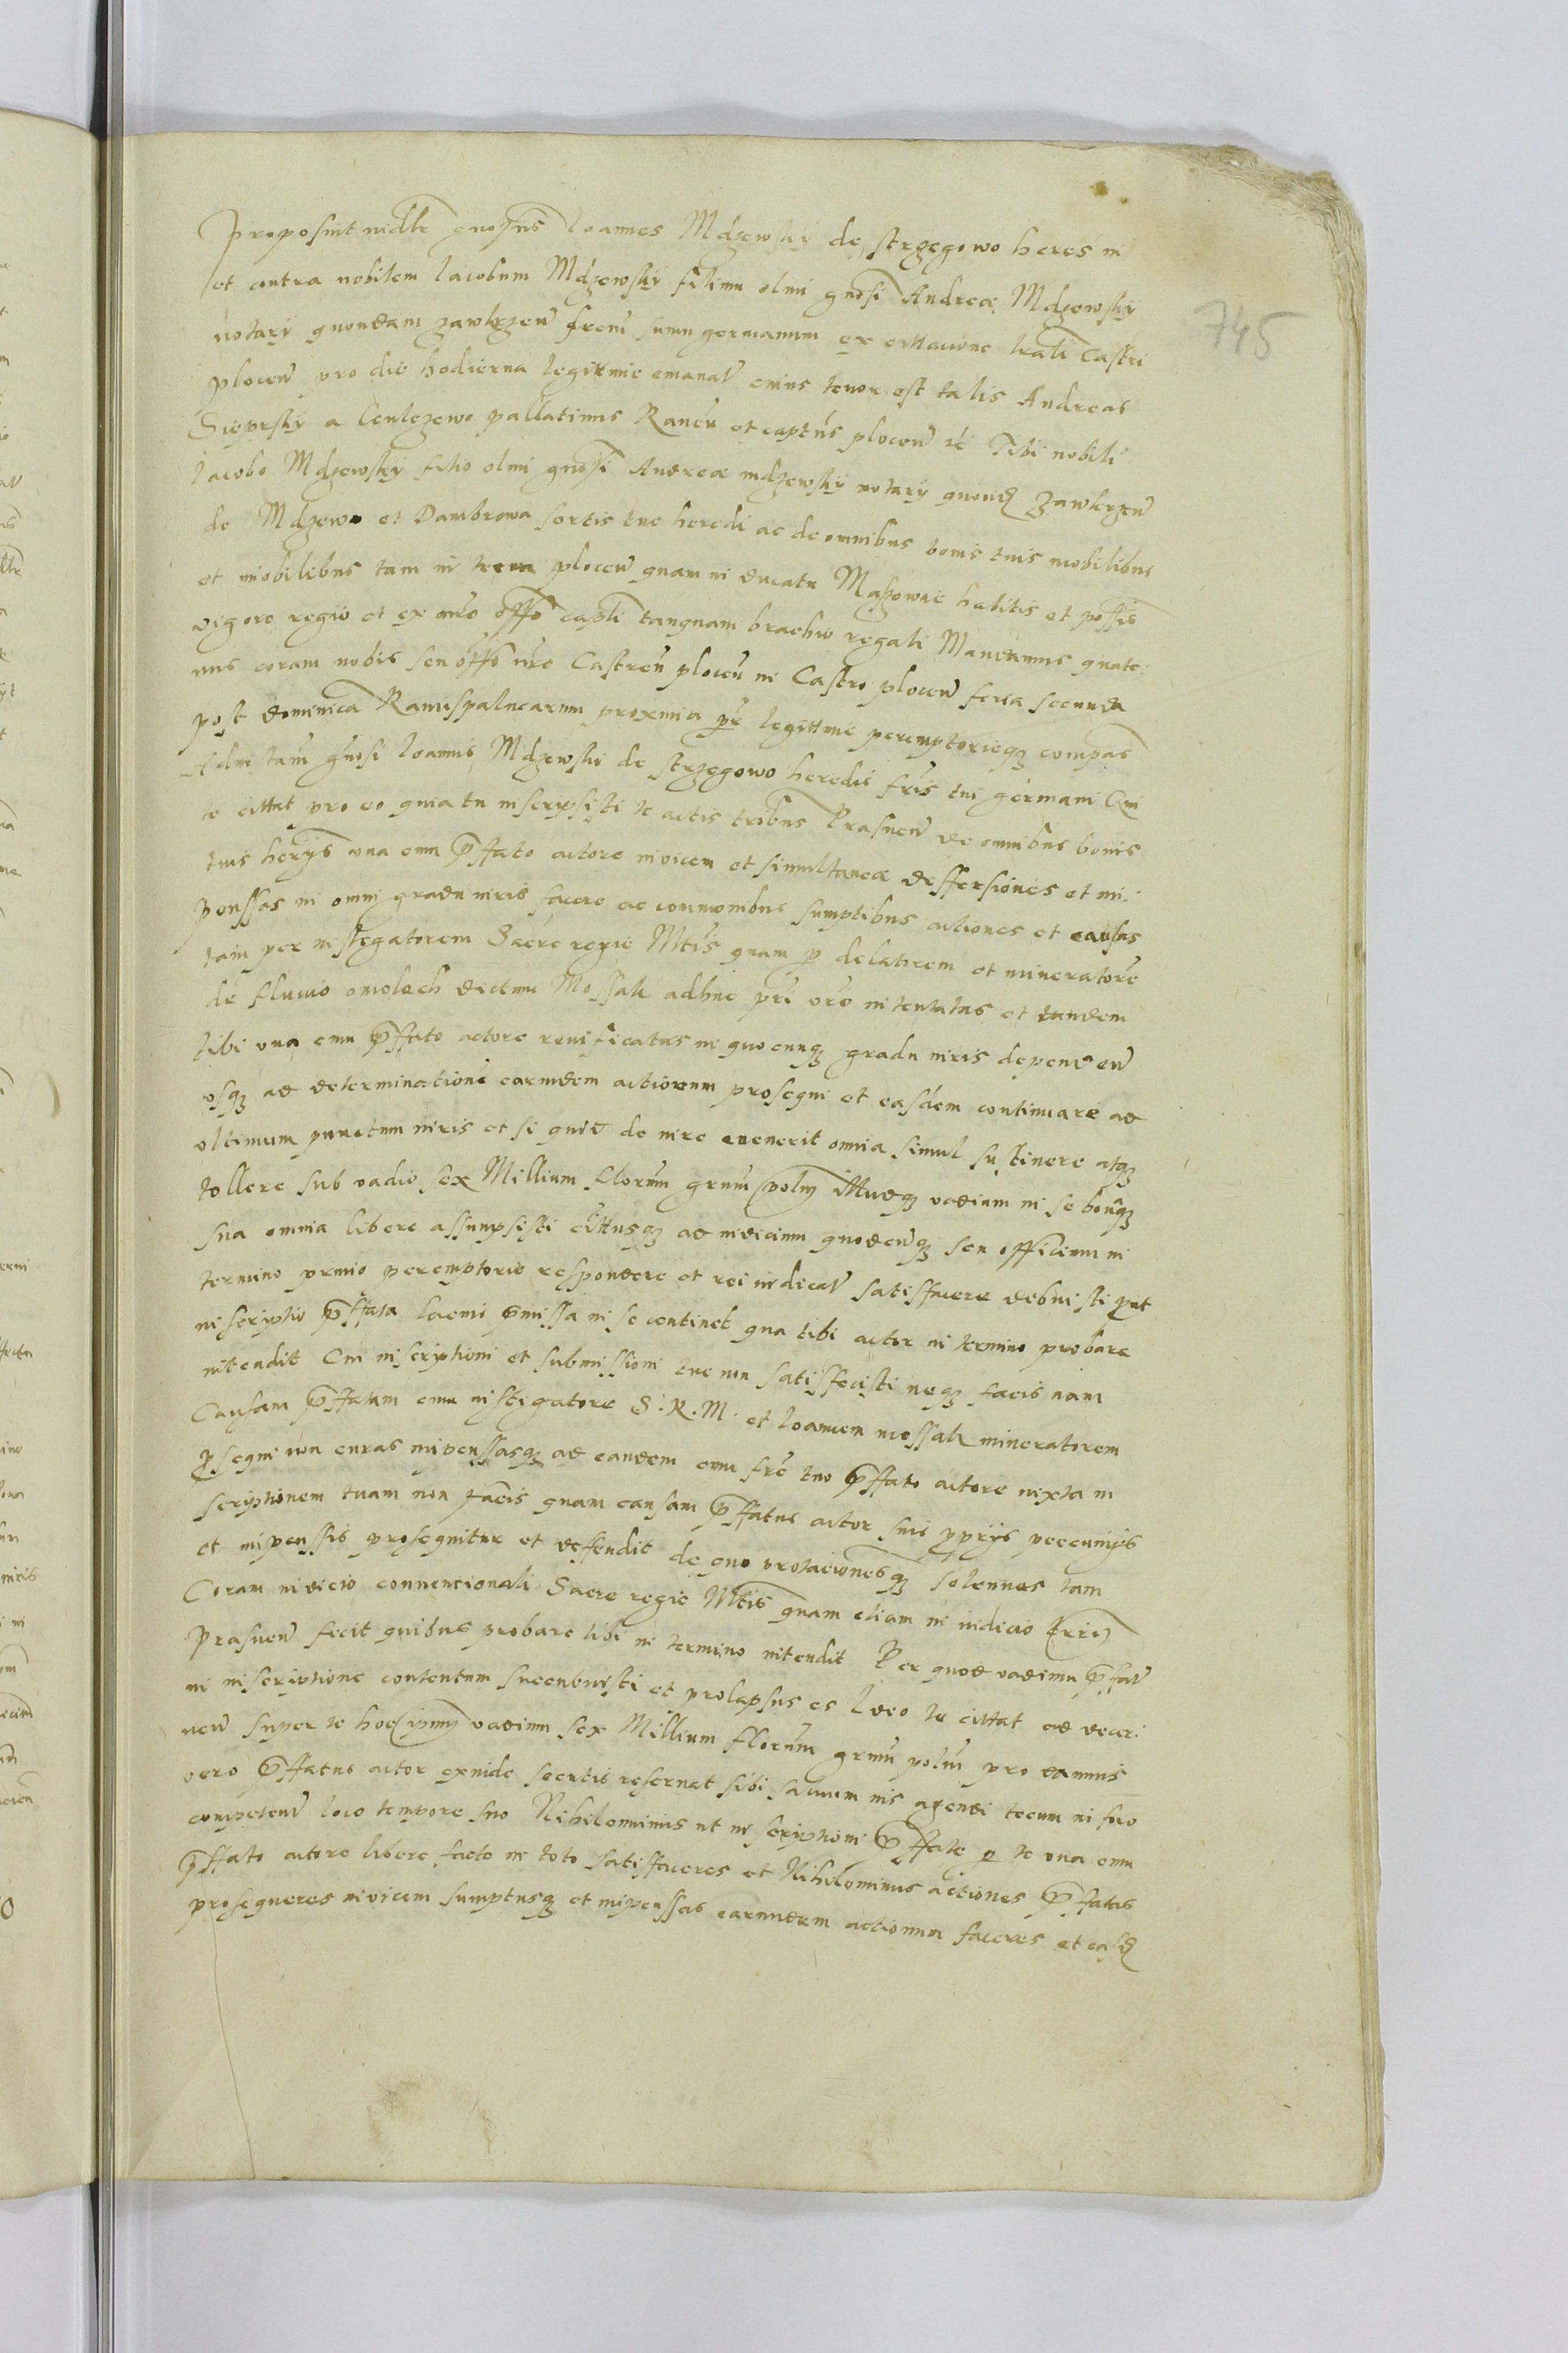 Proposuit vidlt gnosus Joannes Mdzewsky de strzegowo heres in
et contra nobilem Jacobum Mdzewsky filium olim gnosi Andreæ Mdzewsky
notary quondam zawkrzen frem suum germanum ex cittacione lrali Castri
745
plocen pro die hodierna legittime emanat cuius tenor est talis Andreas
Sieprsky a Gulczewo pallatinus Raven et captus plocen rc Tibi nobili
Jacobo Mdzewsky filio olim gnosi Andreæ mdzewsky notary quond Zawkrzen
de Mdzewo et Dambrowa sortis tue heredi ac de omnibus bonis tuis mobilibus
et imobilibus tam in terra plocen quam in ducatu Mazowie habitis et possis
vigore regio et ex nro offo captli tanquam brachio regali Mandamus quate:
nus coram nobis seu offo nro Castren plocen in Castro plocen feria secunda
post dominica Ramispalmarum proxima pr legittime peremptorieq compas
Ad instam gnosi Joannis Mdzewski de strzegowo heredis fris tui germani Qui
te cittat pro eo quia tu inscripsisti te actis tribus Prasnen de omnibus bonis
tuis herijs una cum pffato actore invicem et simultaneæ deffensiones et im:
penssas in omni gradu iuris facere ac communibus sumptibus actiones et causas
tam per instigatorem Sacre regie Mtis quam p delatorem et mineratore
de fluvio omolech dictum Mossak adhuc pri vro intentatas et tandem
tibi una cum pffato actore revificatas in quocunq gradu iuris dependen
usq ad determinatione earundem actionum prosequi et easdem continuare ad
ultimum punctum iuris et si quid de iure evenerit omnia simul sustinere atq
tollere sub vadio sex Millium florum grum polny illudq vadium in se bonaq
sua omnia libere assumpsisti cittusq ad iudicium quodcunq seu officium in
termino primo peremptorie respondere et rei iudicat satisfacere debuisti put
inscriptio pffata lacius pmissa in se continet qua tibi actor in termino probare
intendit Cui inscriptioni et submissioni tue non satisfecisti neq facis nam
Causam pffatam cum instigatore S. R. M. et Joannem mossak mineratorem
psequi non curas impenssasq ad eandem cum fre tuo pffato actore iuxta in
scriptionem tuam non facis quam causam pffatus actor suis pprijs pecunijs
et impenssis prosequitur et deffendit de quo protacionesq solennes tam
Coram iudicio convencionali Sacre regie Mtis quam etiam in iudicio trri
Prasnen fecit quibus probare tibi in termino intendit Per quod vadium pfat
in inscriptione contentum succubuisti et prolapsus es Ideo te cittat ad decer:
nen super te hoc ipsum vadium sex Millium florum grum polny pro damnis
vero pffatus actor exinde secutis reservat sibi salvum ius agendi tecum in foro
competen loco tempore suo Nihilominus ut inscriptioni pffate p te una cum
pffato actore libere facte in toto satisfaceres et Nihilominus actiones pffatas
prosequeres invicem sumptusq et impenssas earundem actionum faceres et easd